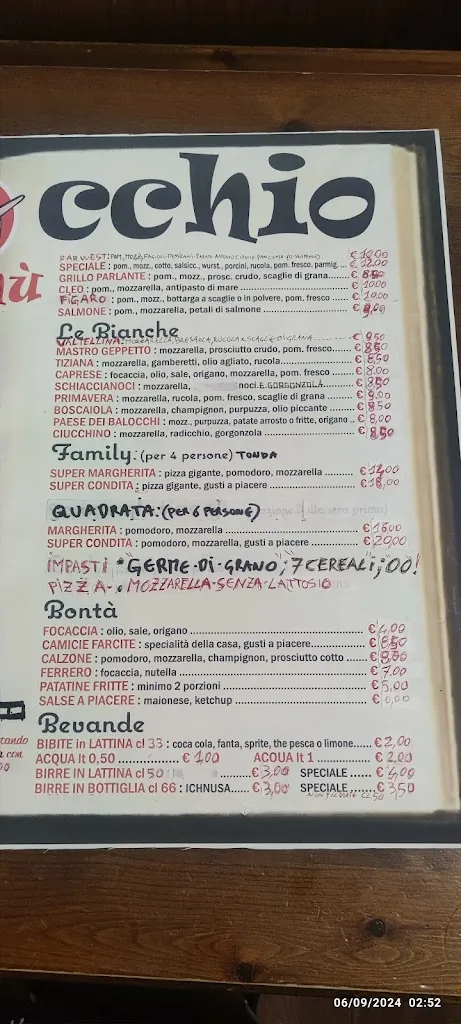 cchio
FAR WEST: POM, MOZZ, FAGIOLI
SPECIALE : pom., mozz., cotto, salsicc., wurst., porcini, rucola, pom. fresco, parmig. ... € 12,00
GRILLO PARLANTE : pom., mozz., prosc. crudo, scaglie di grana ... € 8,50
CLEO : pom., mozzarella, antipasto di mare ... € 10,00
FIGARO : pom., mozz., bottarga a scaglie o in polvere, pom. fresco ... € 10,00
SALMONE : pom., mozzarella, petali di salmone ... €
Le Bianche
VALTELLINA: MOZZARELLA, BRESAOLA, RUCOLA, SCAGLIE DI GRANA ... € 9,50
MASTRO GEPPETTO : mozzarella, prosciutto crudo, pom. fresco ... € 8,50
TIZIANA : mozzarella, gamberetti, olio agliato, rucola ... € 8,50
CAPRESE : focaccia, olio, sale, origano, mozzarella, pom. fresco ... € 8,00
SCHIACCIANOCI : mozzarella, noci E GORGONZOLA ... € 8,50
PRIMAVERA : mozzarella, rucola, pom. fresco, scaglie di grana ... € 9,00
BOSCAIOLA : mozzarella, champignon, purpuzza, olio piccante ... € 8,50
PAESE DEI BALOCCHI : mozz., purpuzza, patate arrosto o fritte, origano .. € 8,00
CIUCCHINO : mozzarella, radicchio, gorgonzola ... € 8,50
Family: (per 4 persone) TONDA
SUPER MARGHERITA : pizza gigante, pomodoro, mozzarella ... € 14,00
SUPER CONDITA : pizza gigante, gusti a piacere ... € 18,00
QUADRATA: (PER 6 PERSONE)
MARGHERITA : pomodoro, mozzarella ... € 16,00
SUPER CONDITA : pomodoro, mozzarella, gusti a piacere ... € 20,00
IMPASTI : "GERME DI GRANO", 7 CEREALI, 00!
PIZZA MOZZARELLA SENZA LATTOSIO
Bontà
FOCACCIA : olio, sale, origano ... € 4,00
CAMICIE FARCITE : specialità della casa, gusti a piacere ... € 8,50
CALZONE : pomodoro, mozzarella, champignon, prosciutto cotto ... €
FERRERO : focaccia, nutella ... € 7,00
PATATINE FRITTE : minimo 2 porzioni ... € 5,00
SALSE A PIACERE : maionese, ketchup ... €
Bevande
BIBITE in LATTINA cl 33 : coca cola, fanta, sprite, the pesca o limone ... € 2,00
ACQUA lt 0,50 ... € 1,00 ACQUA lt 1 ... € 2,00
BIRRE IN LATTINA cl 50 ... € 3,00 SPECIALE ... € 4,00
BIRRE IN BOTTIGLIA cl 66 : ICHNUSA ... € 3,00 SPECIALE ... € 3,50
06/09/2024 02:52